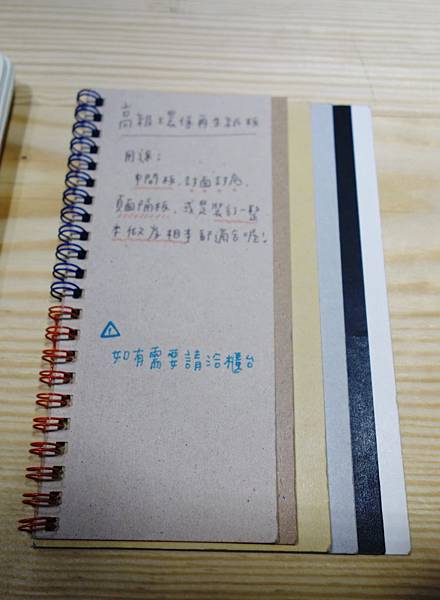 高級環保再生紙板
用途:
中間板、封面封底、
頁面隔板、或是裝訂一整
本做為相本都適合喔!
如有需要請洽櫃台